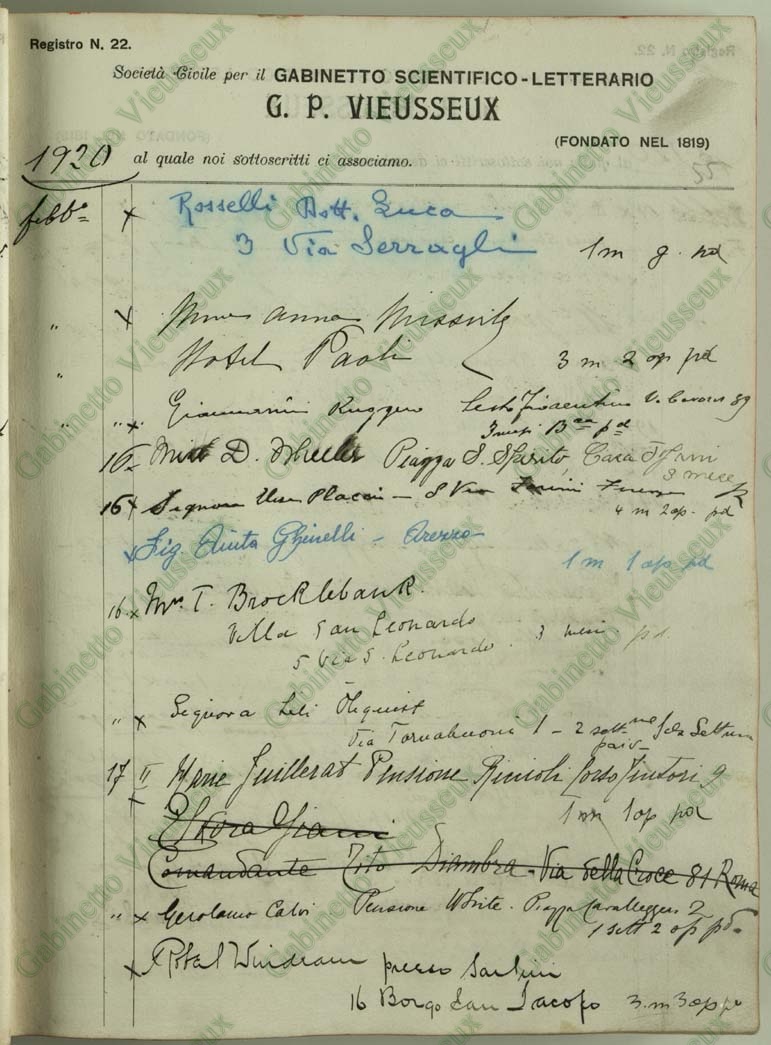 Registro N. 22.
Società Civile per il GABINETTO SCIENTIFICO-LETTERARIO
G. P. VIEUSSEUX
(FONDATO NEL 1819)
1920 al quale noi sottoscritti ci associamo.
55
febb° x Rosselli Dott. Luca
3 Via Serragli 1 m g. pd
" x Anna
" Hotel Paoli 3 m 2 op pd
" x Giannini Ruggero Sesto Fiorentino V. Cavour 89
3 mesi pd
16 Miss D. Wheeler Piazza S. Spirito, Casa
3 mesi
16 x Signora Via Firenze
4 m 2 op. pd
x Sig. Anita Ghinelli - Arezzo
1 m 1 op pd
16 x Mrs T. Brocklebank.
Villa San Leonardo
5 Via S. Leonardo. 3 mesi pd.
" x Signora Lili Öhquist
Via Tornabuoni 1 - 2 sett.ne
17 " Marie Juillerat Pensione Rigioli Corso Tintori 9
x 1 m 1 op pd
Comandante Tito Diambra - Via della Croce 81 Roma
" x Gerolamo Calvi Pensione White. Piazza Cavalleggeri 2
1 sett 2 op pd.
x Windeam presso
16 Borgo San Jacopo 3. m 3 op pd
Gabinetto Vieusseux